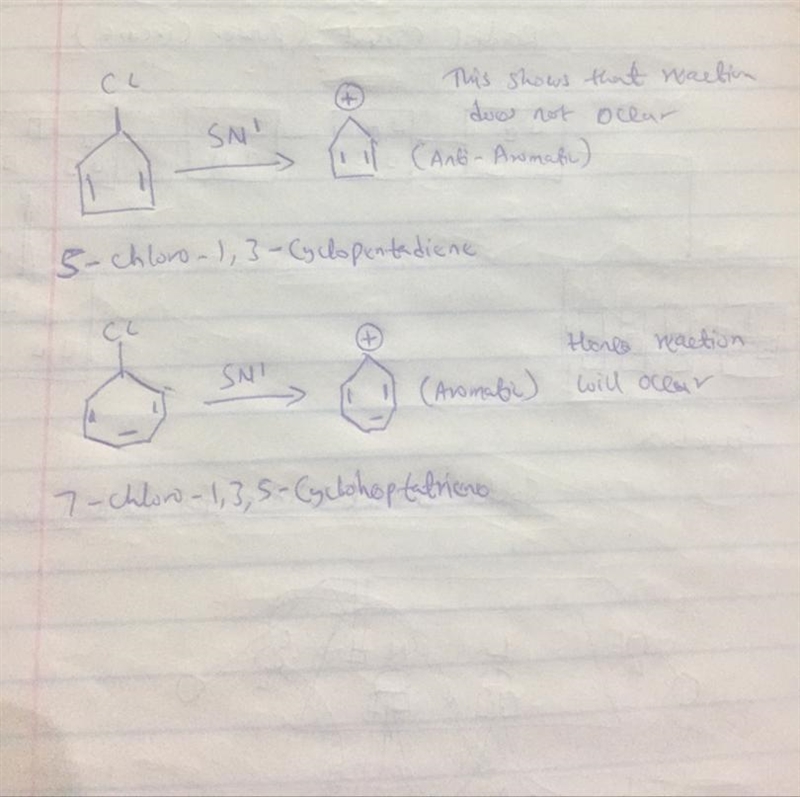 Cl
This shows that reaction
SN1
⊕
does not occur
(Anti-Aromatic)
5-chloro-1,3-Cyclopentadiene
Cl
SN1
⊕
Hence reaction
(Aromatic)
will occur
7-chloro-1,3,5-Cycloheptatriene